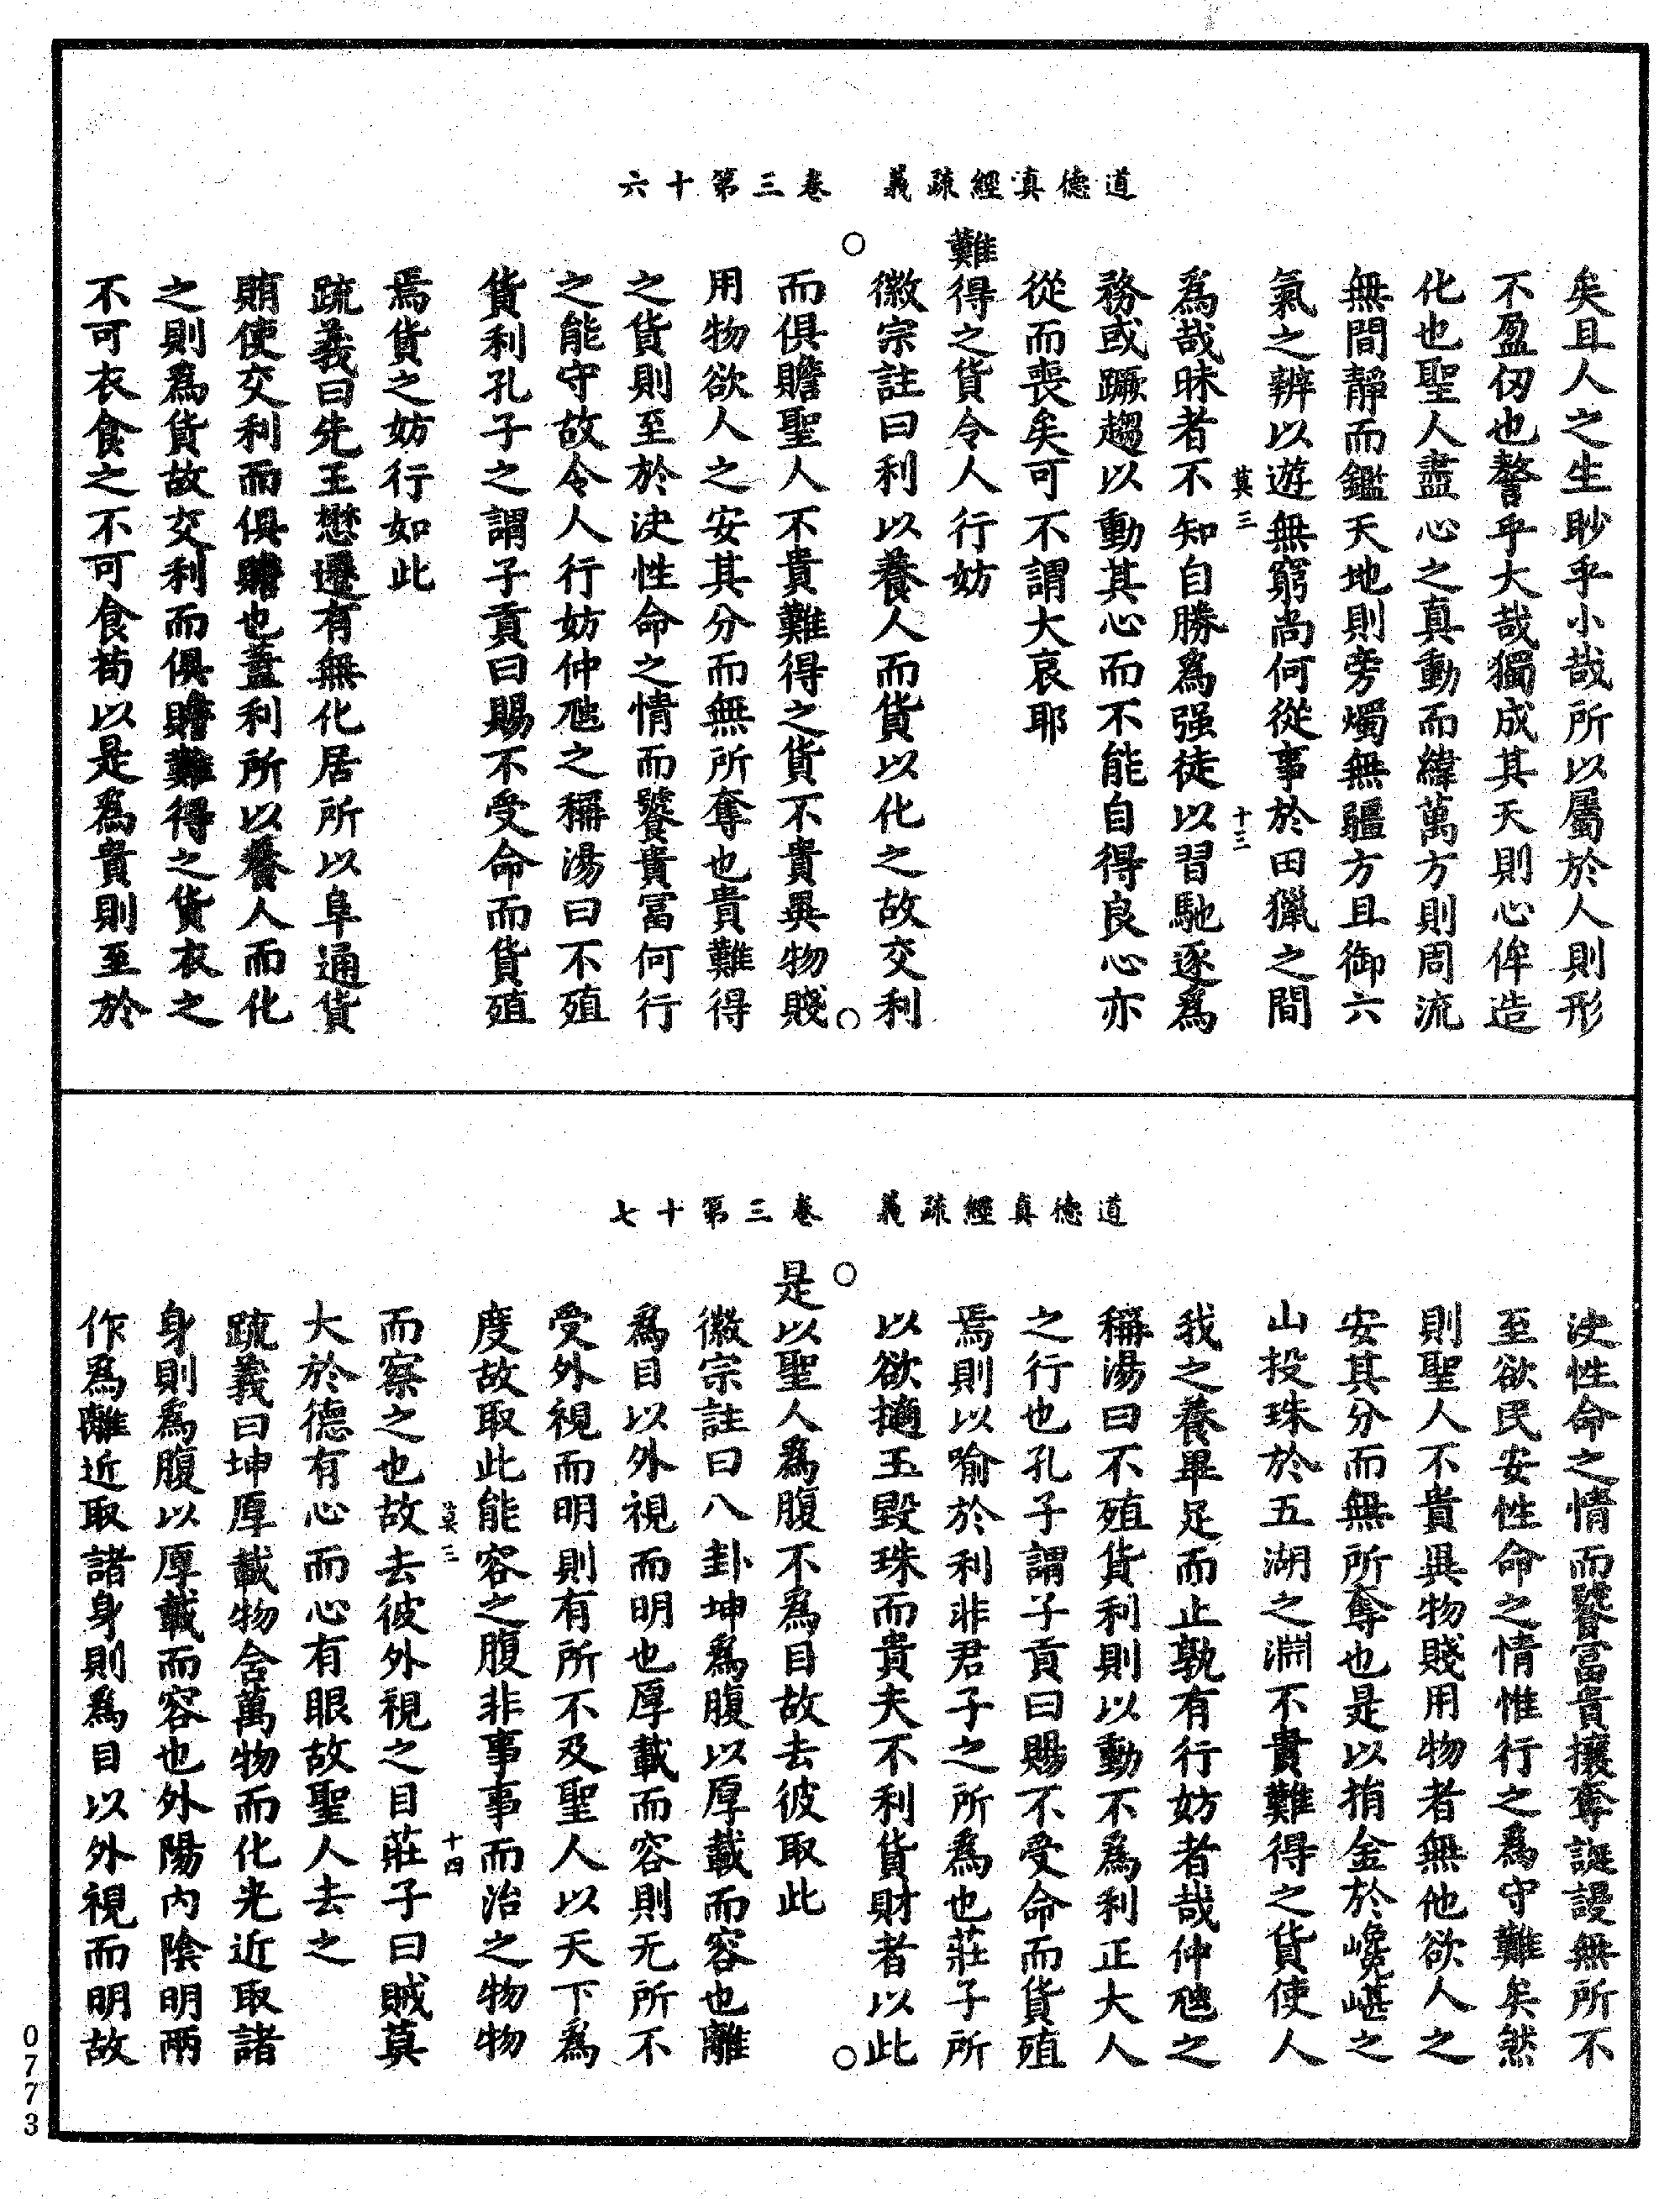 道德真經疏義　卷三第十六
矣且人之生眇乎小哉所以屬於人則形
不盈仞也謷乎大哉獨成其天則心侔造
化也聖人盡心之真動而緯萬方則周流
無間靜而鑑天地則旁燭無疆方且御六
氣之辨以遊無窮尚何從事於田獵之間
莫三　十三
爲哉昧者不知自勝爲强徒以習馳逐爲
務或蹶趨以動其心而不能自得良心亦
從而喪矣可不謂大哀耶
難得之貨令人行妨
徽宗註曰利以養人而貨以化之故交利
而俱贍聖人不貴難得之貨不貴異物賤
用物欲人之安其分而無所奪也貴難得
之貨則至於決性命之情而饕貴富何行
之能守故令人行妨仲虺之稱湯曰不殖
貨利孔子之謂子貢曰賜不受命而貨殖
焉貨之妨行如此
疏義曰先王懋遷有無化居所以阜通貨
賄使交利而俱贍也蓋利所以養人而化
之則爲貨故交利而俱贍難得之貨衣之
不可衣食之不可食苟以是爲貴則至於
道德真經疏義　卷三第十七
決性命之情而饕富貴攘奪誕謾無所不
至欲民安性命之情惟行之爲守難矣然
則聖人不貴異物賤用物者無他欲人之
安其分而無所奪也是以捐金於巉巖之
山投珠於五湖之淵不貴難得之貨使人
我之養畢足而止孰有行妨者哉仲虺之
稱湯曰不殖貨利則以動不爲利正大人
之行也孔子謂子貢曰賜不受命而貨殖
焉則以喻於利非君子之所爲也莊子所
以欲擿玉毀珠而貴夫不利貨財者以此
是以聖人爲腹不爲目故去彼取此
徽宗註曰八卦坤爲腹以厚載而容也離
爲目以外視而明也厚載而容則无所不
受外視而明則有所不及聖人以天下爲
度故取此能容之腹非事事而治之物物
莫三　十四
而察之也故去彼外視之目莊子曰賊莫
大於德有心而心有眼故聖人去之
疏義曰坤厚載物含萬物而化光近取諸
身則爲腹以厚載而容也外陽內陰明兩
作爲離近取諸身則爲目以外視而明故
0773